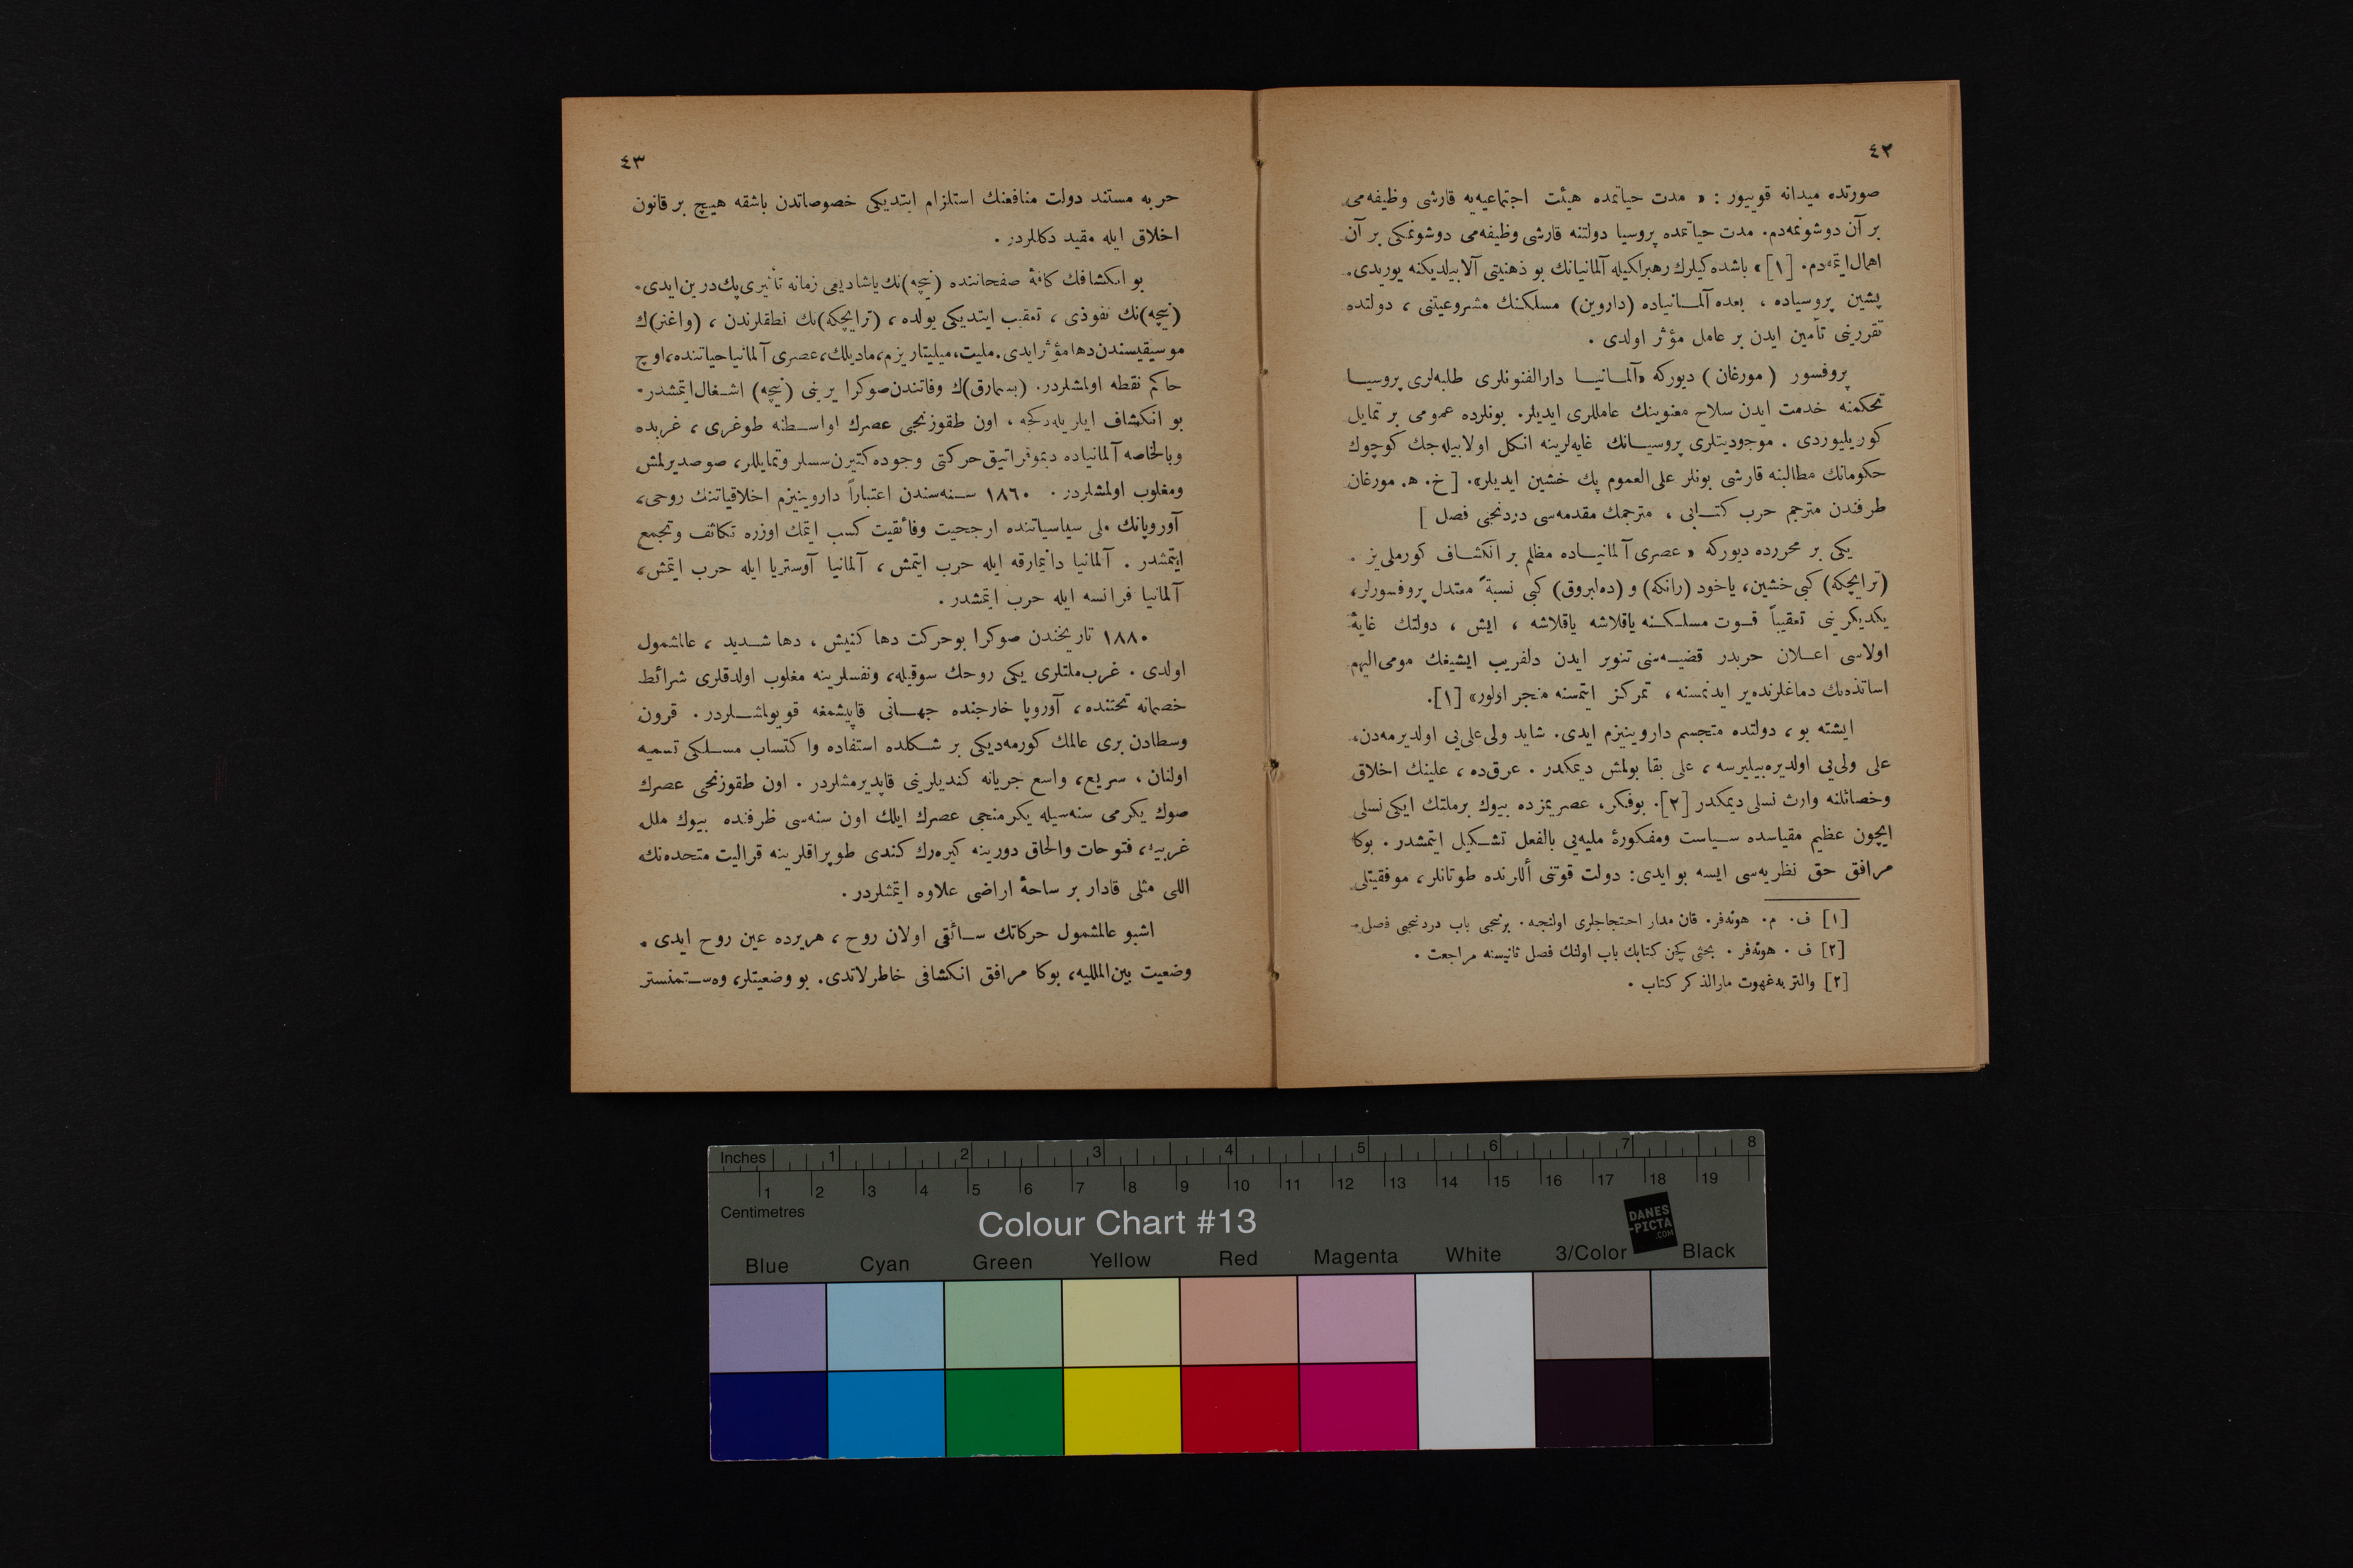 ٤٢
صورتده میدانه قویيور : « مدت حیاتمده هیئت اجتماعیه‌یه قارشی وظیفه‌می
بر آن دوشونمه‌دم. مدت حیاتمده پروسیا دولتنه قارشی وظیفه‌می دوشونمکی بر آن
اهمال ایتمه‌دم. [١] » باشده کیلرك رهبرلکیله آلمانیانك بو ذهنیتی آلابیلدیکنه یوریدی.
پشین پروسیاده ، بعده آلمانیاده (داروین) مسلکنك مشروعیتنی ، دولتده
تقررینی تأمین ایدن بر عامل مؤثر اولدی .
پروفسور (مورغان) دیورکه «آلمانیا دارالفنونلری طلبه‌لری پروسیا
تحکمنه خدمت ایدن سلاح معنوینك عامللری ایدیلر. بونلرده عمومی بر تمایل
کوریلیوردی . موجودیتلری پروسیانك غایه‌لرینه انکل اولابیله‌جك کوچوك
حکوماتك مطالبنه قارشی بونلر علی‌العموم پك خشین ایدیلر». [ خ. ه. مورغان
طرفندن مترجم حرب کتابی ، مترجمك مقدمه‌سی دردنجی فصل ]
یکی بر محررده دیورکه « عصری آلمانیاده مظلم بر انکشاف کورملی‌یز .
(ترایچکه) کبی خشین، یاخود (رانکه) و (ده‌لبروق) کبی نسبةً معتدل پروفسورلر،
یکدیکرینی تعقیباً قوت مسلکنه یاقلاشه یاقلاشه ، ایش ، دولتك غایۀ
اولاسی اعلان حربدر قضیه‌سنی تنویر ایدن دلفریب ایشیغك مومی‌الیهم
اساتذه‌نك دماغلرنده‌یر ایدنمسنه ، تمرکز ایتمسنه منجر اولور» [١].
ایشته بو ، دولتده متجسم داروینیزم ایدی. شاید ولی علی‌یی اولدیرمه‌دن،
علی ولی‌یی اولدیره‌بیلیرسه ، علی بقا بولمش دیمکدر . عرق‌ده ، علینك اخلاق
وخصائلنه وارث نسلی دیمکدر [٢]. بوفکر، عصریمزده بیوك برملتك ایکی نسلی
ایچون عظیم مقیاسده سیاست ومفکورۀ ملیه‌یی بالفعل تشکیل ایتمشدر . بوکا
مرافق حق نظریه‌سی ایسه بو ایدی: دولت قوتنی أللرنده طوتانلر ، موفقیتلی
[١] ف. م. هوئه‌فر. قان مدار احتجاجلری اولنجه. برنجی باب دردنجی فصل.
[٢] ف . هوئه‌فر . بحثی کچن کتابك باب اولنك فصل ثانیسنه مراجعت .
[٢] والتر به‌غهوت مارالذکر کتاب .
٤٣
حربه مستند دولت منافعنك استلزام ایتدیکی خصوصاتدن باشقه هیچ بر قانون
اخلاق ایله مقید دکللردر .
بو انکشافك کافۀ صفحاتنده (نیچه)نك یاشادیغی زمانه تأثیری پك درین ایدی.
(نیچه)نك نفوذی ، تعقیب ایتدیکی یولده ، (ترایچکه)نك نطقلرندن ، (واغنر)ك
موسیقیسندن دها مؤثر ایدی. ملیت، میلیتاریزم، مادیلك، عصری آلمانیا حیاتنده، اوچ
حاکم نقطه اولمشلردر. (بسمارق)ك وفاتندن صوکرا یرینی (نیچه) اشغال ایتمشدر.
بو انکشاف ایلریله‌دکجه ، اون طقوزنجی عصرك اواسطنه طوغری ، غربده
وبالخاصه آلمانیاده دیموقراتیق حرکتی وجوده کتیرن سسلر وتمایللر، صوصدیرلمش
ومغلوب اولمشلردر . ١٨٦٠ سنه‌سندن اعتباراً داروینیزم اخلاقیاتنك روحی،
آوروپانك ملی سیاسیاتنده ارجحیت وفائقیت کسب ایتمك اوزره تکاثف وتجمع
ایتمشدر . آلمانیا دانیمارقه ایله حرب ایتمش ، آلمانیا آوستریا ایله حرب ایتمش،
آلمانیا فرانسه ایله حرب ایتمشدر .
١٨٨٠ تاریخندن صوکرا بوحرکت دها کنیش ، دها شدید ، عالمشمول
اولدی . غرب‌ملتلری یکی روحك سوقیله، ونفسلرینه مغلوب اولدقلری شرائط
خصمانه تحتنده ، آوروپا خارجنده جهانی قاپیشمغه قویولمشلردر . قرون
وسطادن بری عالمك کورمه‌دیکی بر شکلده استفاده واکتساب مسلکی تسمیه
اولنان ، سریع، واسع جریانه کندیلرینی قاپدیرمشلردر . اون طقوزنجی عصرك
صوك یکرمی سنه‌سیله یکرمنجی عصرك ایلك اون سنه‌سی ظرفنده بیوك ملل
غربیه، فتوحات والحاق دورینه کیره‌رك کندی طوپراقلرینه قرالیت متحده‌نك
اللی مثلی قادار بر ساحۀ اراضی علاوه ایتمشلردر .
اشبو عالمشمول حرکاتك سائقی اولان روح ، هریرده عین روح ایدی .
وضعیت بین‌المللیه، بوکا مرافق انکشافی خاطرلاتدی. بو وضعیتلر، وه‌ستمنستر
Inches 1 2 3 4 5 6 7 8
1 2 3 4 5 6 7 8 9 10 11 12 13 14 15 16 17 18 19
Centimetres
Colour Chart #13
DANES
-PICTA
.COM
Blue Cyan Green Yellow Red Magenta White 3/Color Black